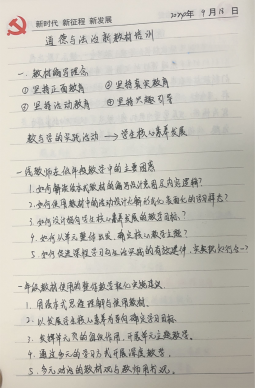 新时代 新征程 新发展
2024年 9月 13日
道德与法治新教材培训
一、教材编写理念
①坚持正面教育 ③坚持真实教育
②坚持活动教育 ④坚持兴趣引导
教与学的实践活动 → 学生核心素养发展
一线教师在低年级教学中的主要困惑
1.如何解读绘本式教材的编写设计意图及内在逻辑?
2.如何使用教材中的活动设计以解决形式化、表面化的学习样态?
3.如何设计指向学生核心素养发展的教学目标?
4.如何从单元整体出发,确立核心教学主题?
5.如何促进课程学习与生活实践的有效延伸,实现知行合一?
一年级教材使用的整体教学转化实施建议
1.用儿童方式思维理解与使用教材。
2.以发展学生核心素养为导向确定学习目标
3.发挥单元页的组织作用,开展单元主题教学。
4.通过多元的学习方式开展深度教学。
5.多元对话的教材观与教师用书观。